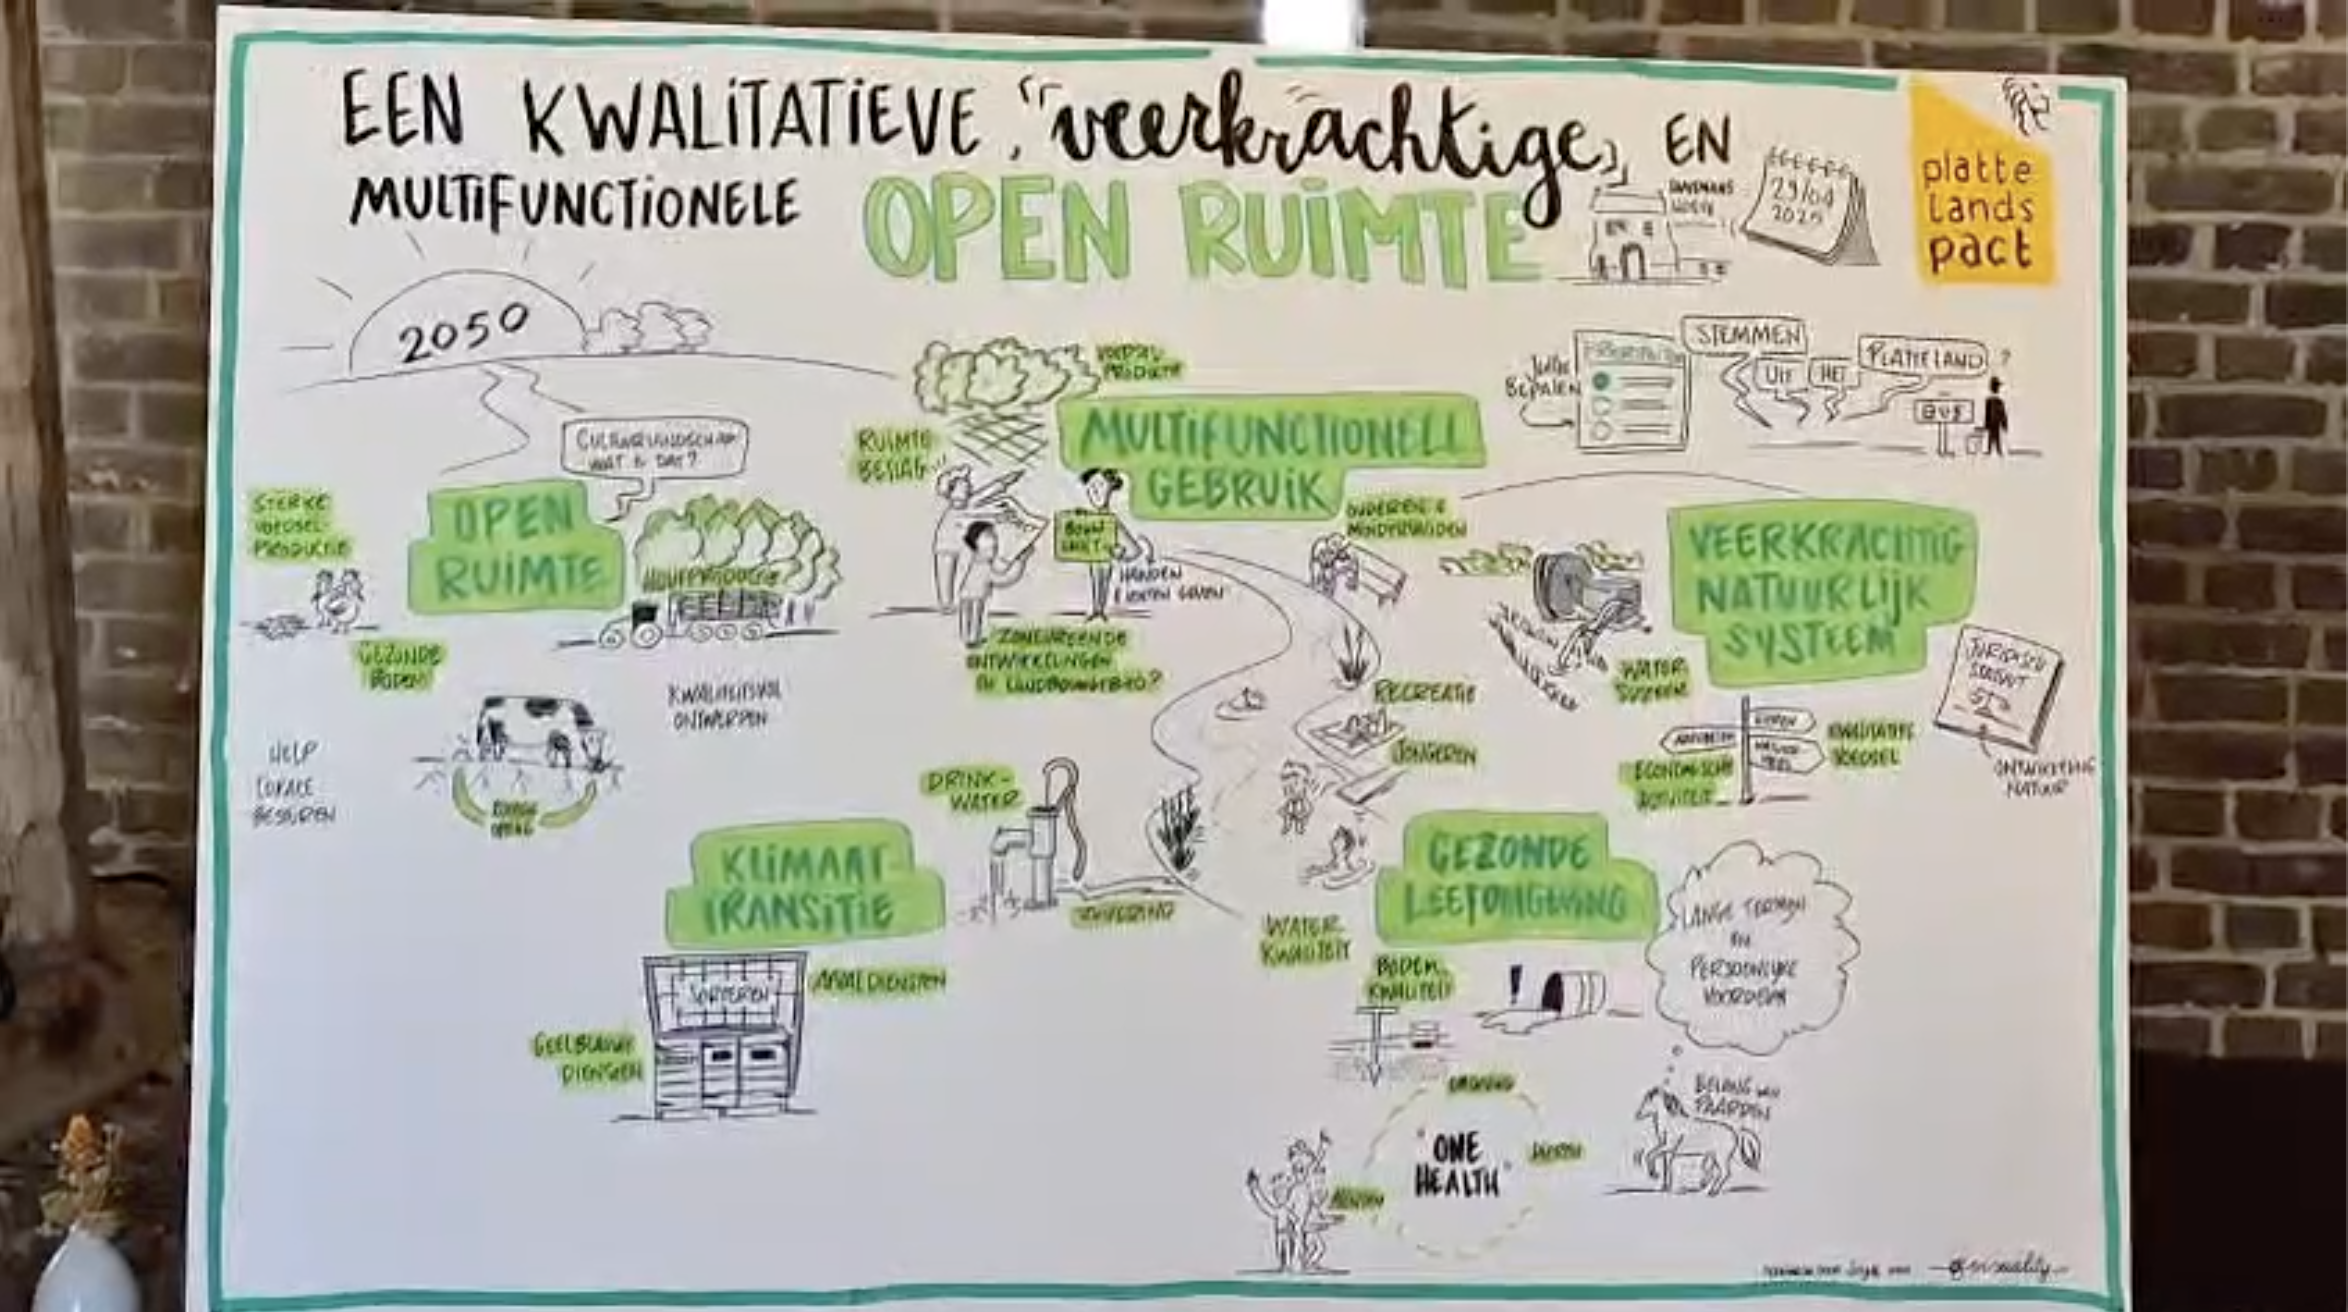 EEN KWALITATIEVE, "veerkrachtige" EN
MULTIFUNCTIONELE OPEN RUIMTE
29/04
2025
platte
lands
pact
2050
CULTUURLANDSCHAP
WAT IS DAT?
STERKE
VOEDSEL-
PRODUCTIE
OPEN
RUIMTE
HOUTPRODUCTIE
GEZONDE
BODEM
KWALITEITSVOL
ONTWERPEN
HELP
LOKALE
BESTUREN
VOEDSEL
PRODUCTIE
RUIMTE
BESLAG
MULTIFUNCTIONEEL
GEBRUIK
BOUW
SHIFT
HANDEN
ZONEVREEMDE
ONTWIKKELINGEN
IN LANDBOUWGEBIED?
OUDEREN &
MINDERVALIDEN
RECREATIE
JONGEREN
JULLIE
BEPALEN
PRIORITEITEN
STEMMEN
UIT
HET
PLATTELAND ?
BUS
VEERKRACHTIG
NATUURLIJK
SYSTEEM
WATER
SYSTEEM
JURIDISCH
STATUUT
ONTWIKKELING
NATUUR
KWALITATIEF
VOEDSEL
ECONOMISCHE
ACTIVITEIT
DRINK-
WATER
KLIMAAT
TRANSITIE
SORTEREN
AFVALDIENSTEN
GEELBLAUWE
DIENSTEN
WATER
KWALITEIT
GEZONDE
LEEFOMGEVING
BODEM
KWALITEIT
!
LANGE TERMIJN
EN
PERSOONLIJKE
VOORDELEN
BELANG VAN
PAARDEN
OMGEVING
"ONE
HEALTH"
DIEREN
MENSEN
@visuality